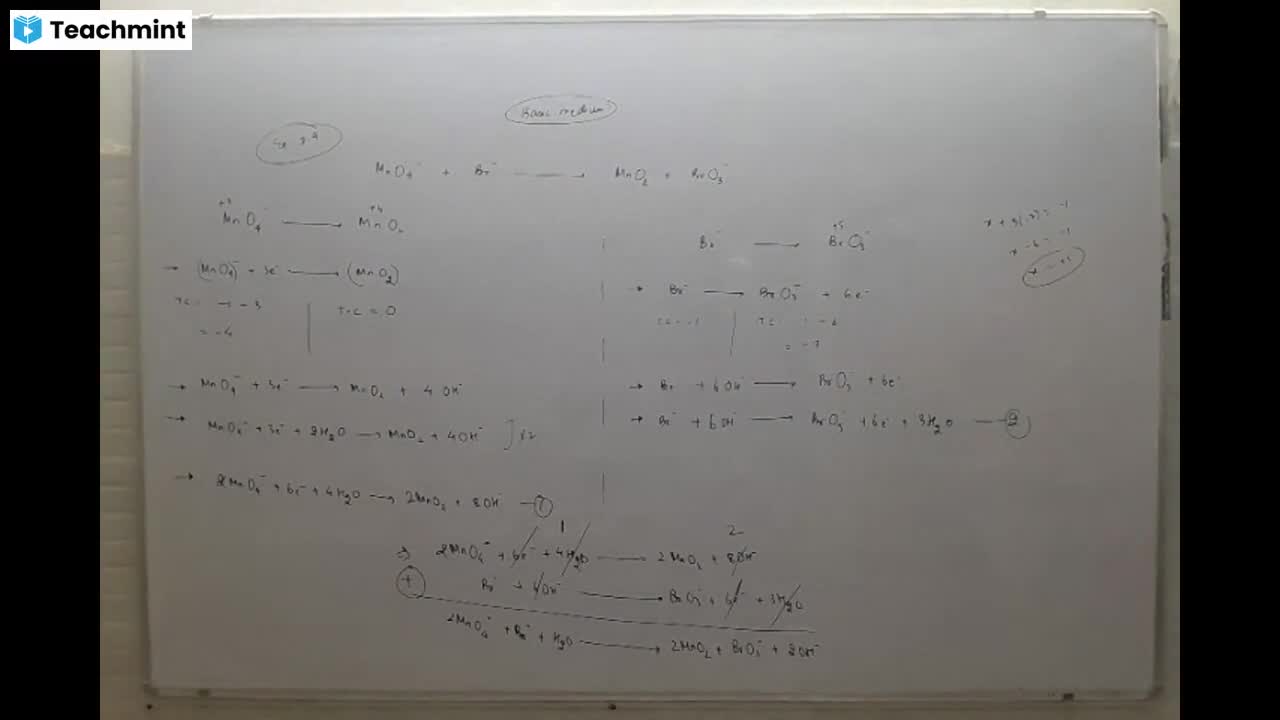 Teachmint
Basic medium
MnO4⁻ + Br⁻ → MnO2 + BrO3⁻
+7 +4
MnO4⁻ → MnO2
→ (MnO4)⁻ + 3e⁻ → (MnO2)
T.C = -1 - 3
= -4
T.C = 0
→ MnO4⁻ + 3e⁻ → MnO2 + 4OH⁻
→ MnO4⁻ + 3e⁻ + 2H2O → MnO2 + 4OH⁻ ] x2
→ 2MnO4⁻ + 6e⁻ + 4H2O → 2MnO2 + 8OH⁻ — 1
+5
Br⁻ → BrO3⁻
→ Br⁻ → BrO3⁻ + 6e⁻
T.C = -1
T.C = -1 - 6
= -7
→ Br⁻ + 6OH⁻ → BrO3⁻ + 6e⁻
→ Br⁻ + 6OH⁻ → BrO3⁻ + 6e⁻ + 3H2O — 2
x + 3(-2) = -1
x - 6 = -1
x = +5
1 2
⇒ 2MnO4⁻ + 6e⁻ + 4H2O → 2MnO2 + 8OH⁻
+ Br⁻ + 6OH⁻ → BrO3⁻ + 6e⁻ + 3H2O
2MnO4⁻ + Br⁻ + H2O → 2MnO2 + BrO3⁻ + 2OH⁻